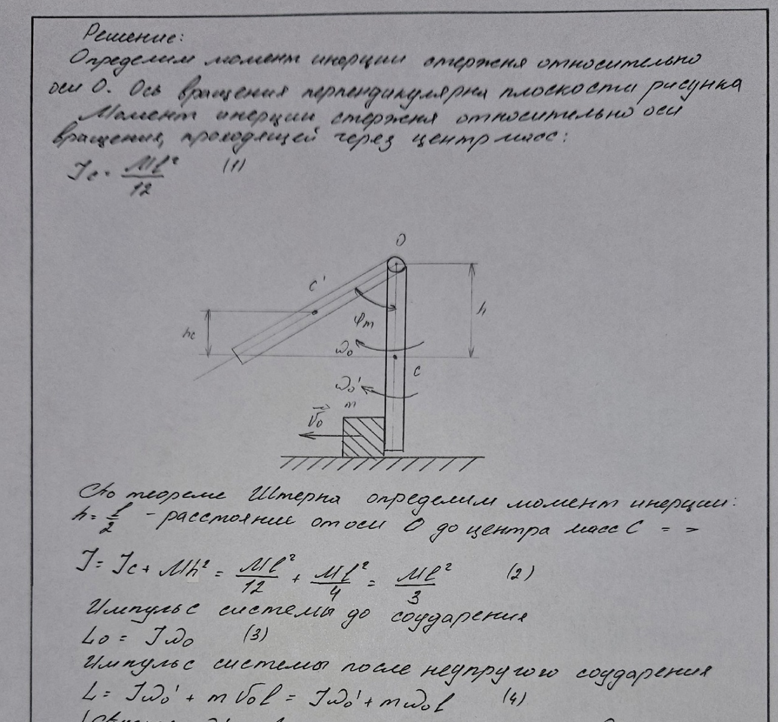 Решение:
Определим момент инерции стержня относительно
оси О. Ось вращения перпендикулярна плоскости рисунка
Момент инерции стержня относительно оси
вращения, проходящей через центр масс:
Jc = Ml²/12 (1)
O
C'
hc
φm
h
ω₀
C
ω₀'
m
V₀
По теореме Штерна определим момент инерции:
h = l/2 - расстояние от оси О до центра масс С =>
J = Jc + Mh² = Ml²/12 + Ml²/4 = Ml²/3 (2)
Импульс системы до соударения
L₀ = Jω₀ (3)
Импульс системы после неупругого соударения
L = Jω₀' + mV₀l = Jω₀' + mω₀l (4)